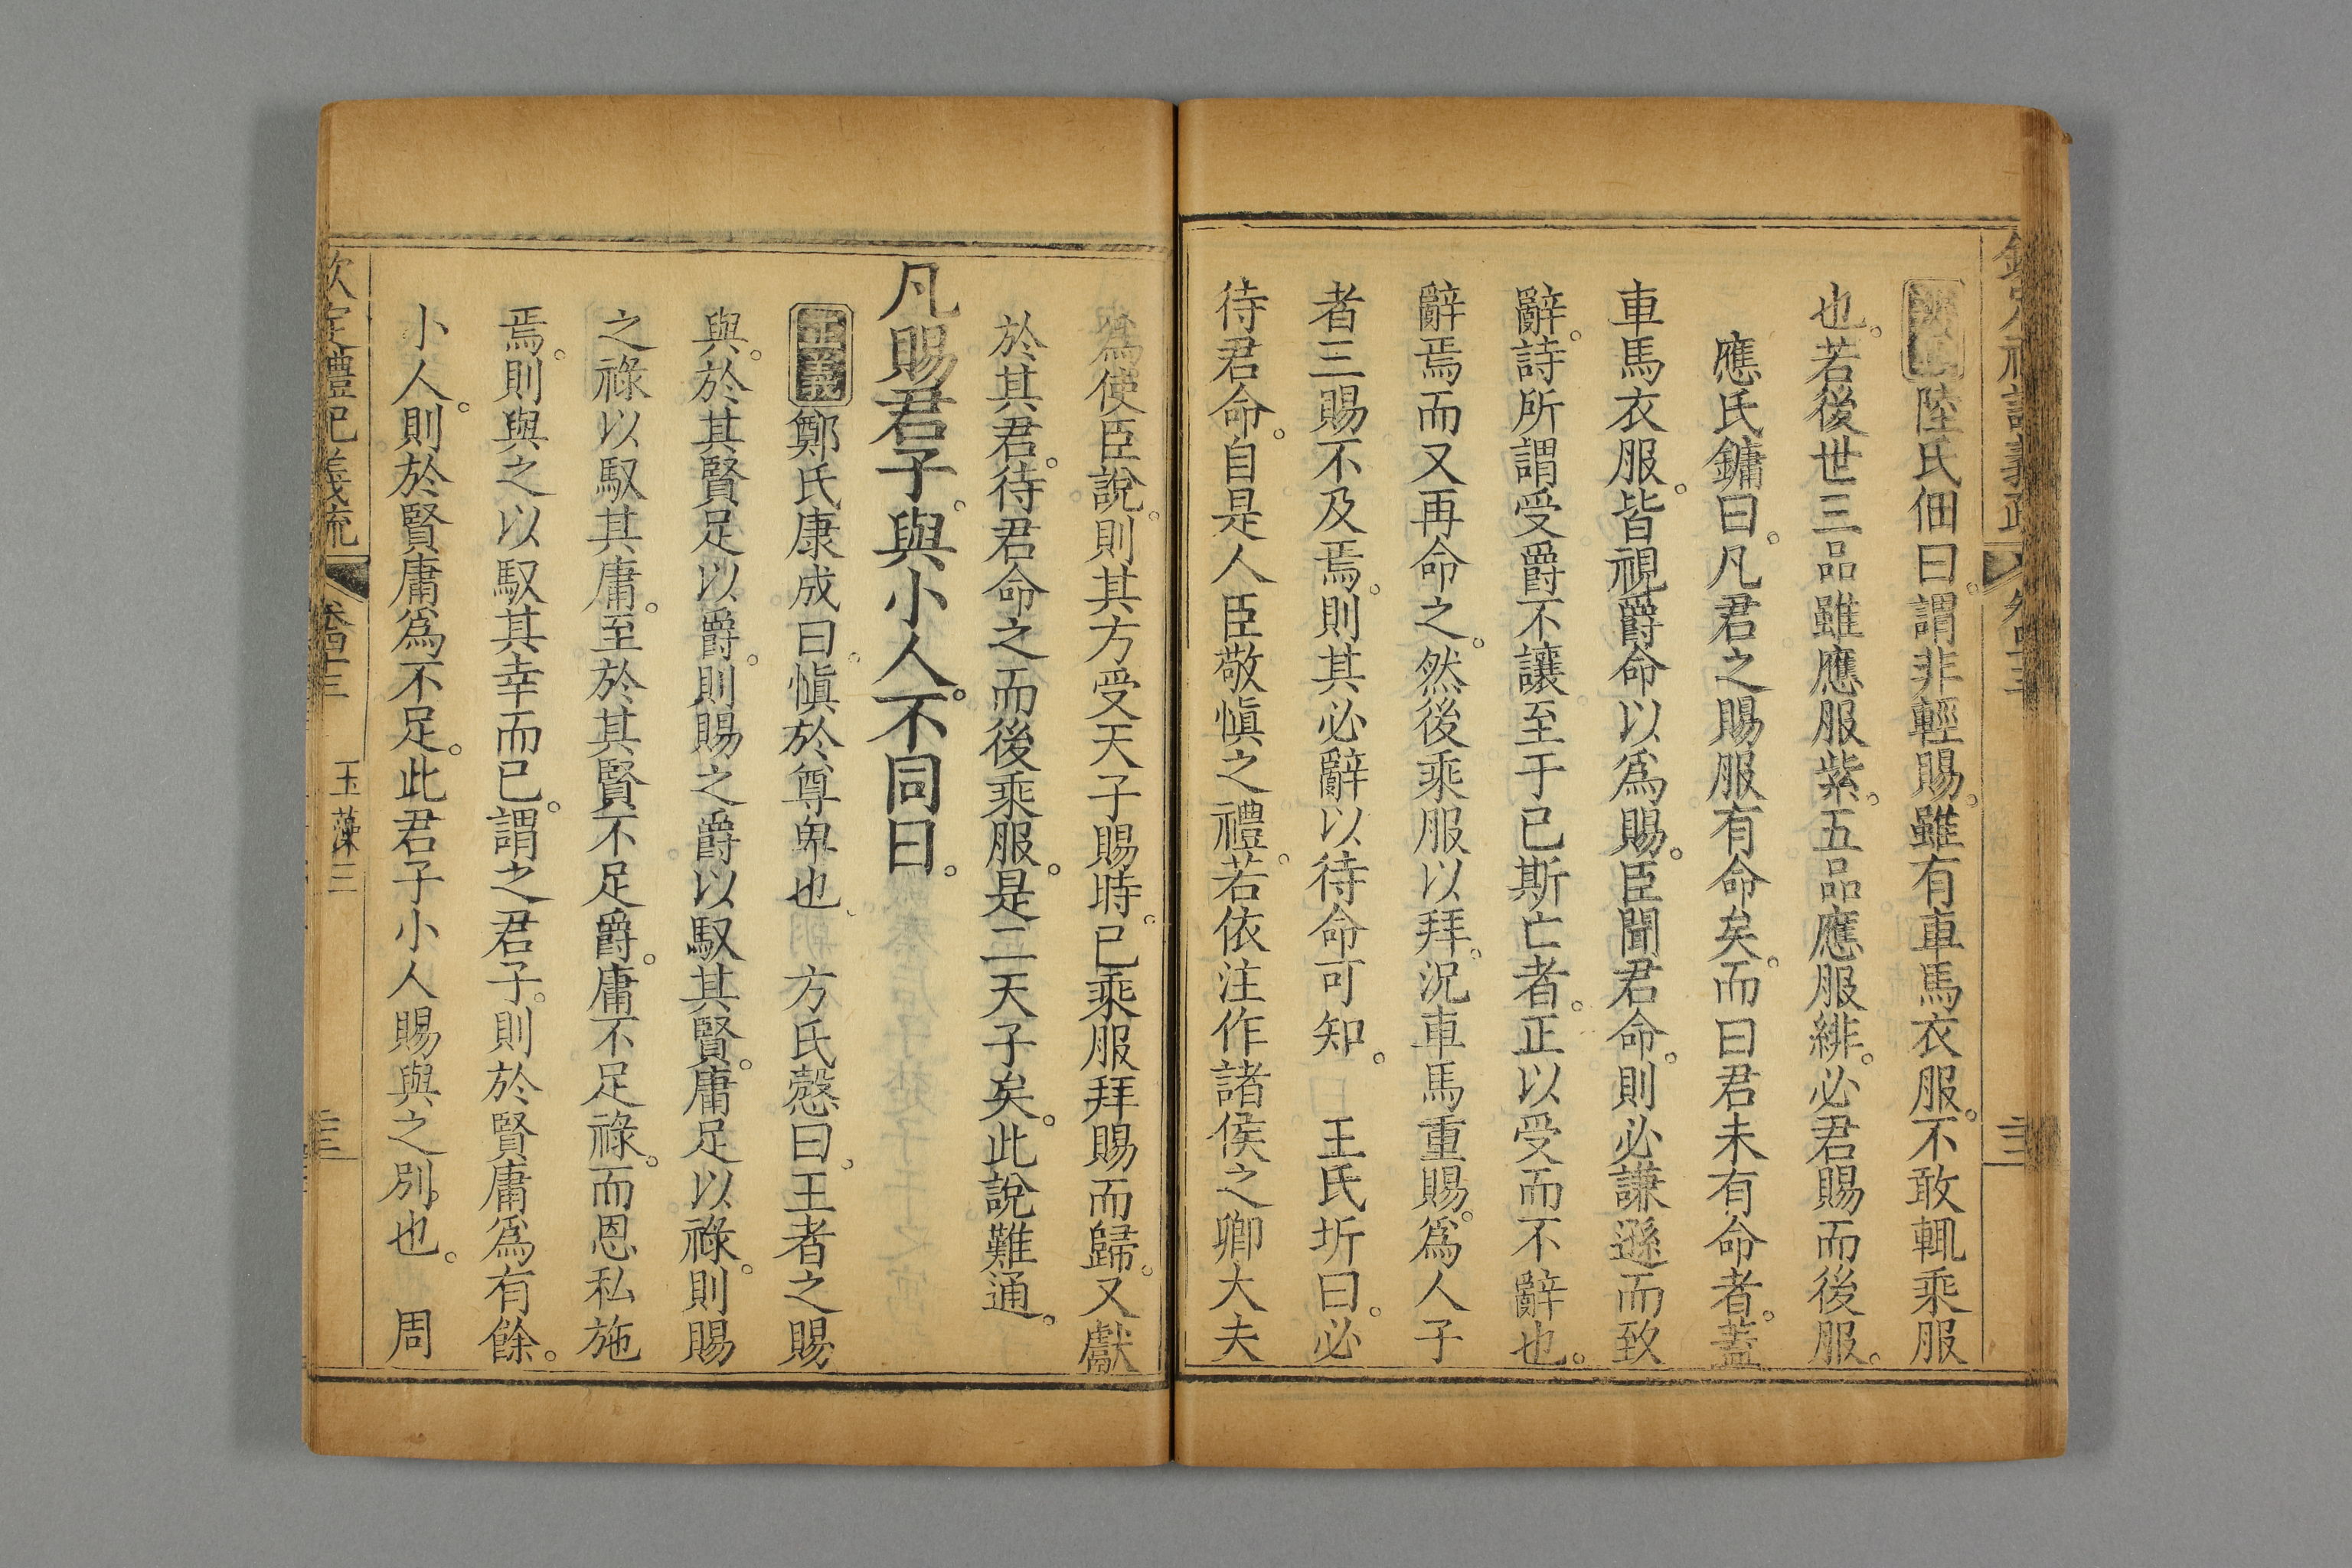 陸氏佃曰謂非輕賜雖有車馬衣服不敢輒乘服
也若後世三品雖應服紫五品應服緋必君賜而後服
應氏鏞曰凡君之賜服有命矣而曰君未有命者蓋
車馬衣服皆視爵命以爲賜臣聞君命則必謙遜而致
辭詩所謂受爵不讓至于已斯亡者正以受而不辭也
辭焉而又再命之然後乘服以拜況車馬重賜爲人子
者三賜不及焉則其必辭以待命可知 王氏圻曰必
待君命自是人臣敬愼之禮若依注作諸侯之卿大夫
爲使臣說則其方受天子賜時已乘服拜賜而歸又獻
於其君待君命之而後乘服是二天子矣此說難通
凡賜君子與小人不同日
正義鄭氏康成曰愼於尊卑也 方氏慤曰王者之賜
與於其賢足以爵則賜之爵以馭其賢庸足以祿則賜
之祿以馭其庸至於其賢不足爵庸不足祿而恩私施
焉則與之以馭其幸而已謂之君子則於賢庸爲有餘
小人則於賢庸爲不足此君子小人賜與之別也 周
欽定禮記義疏 卷四十三 玉藻三